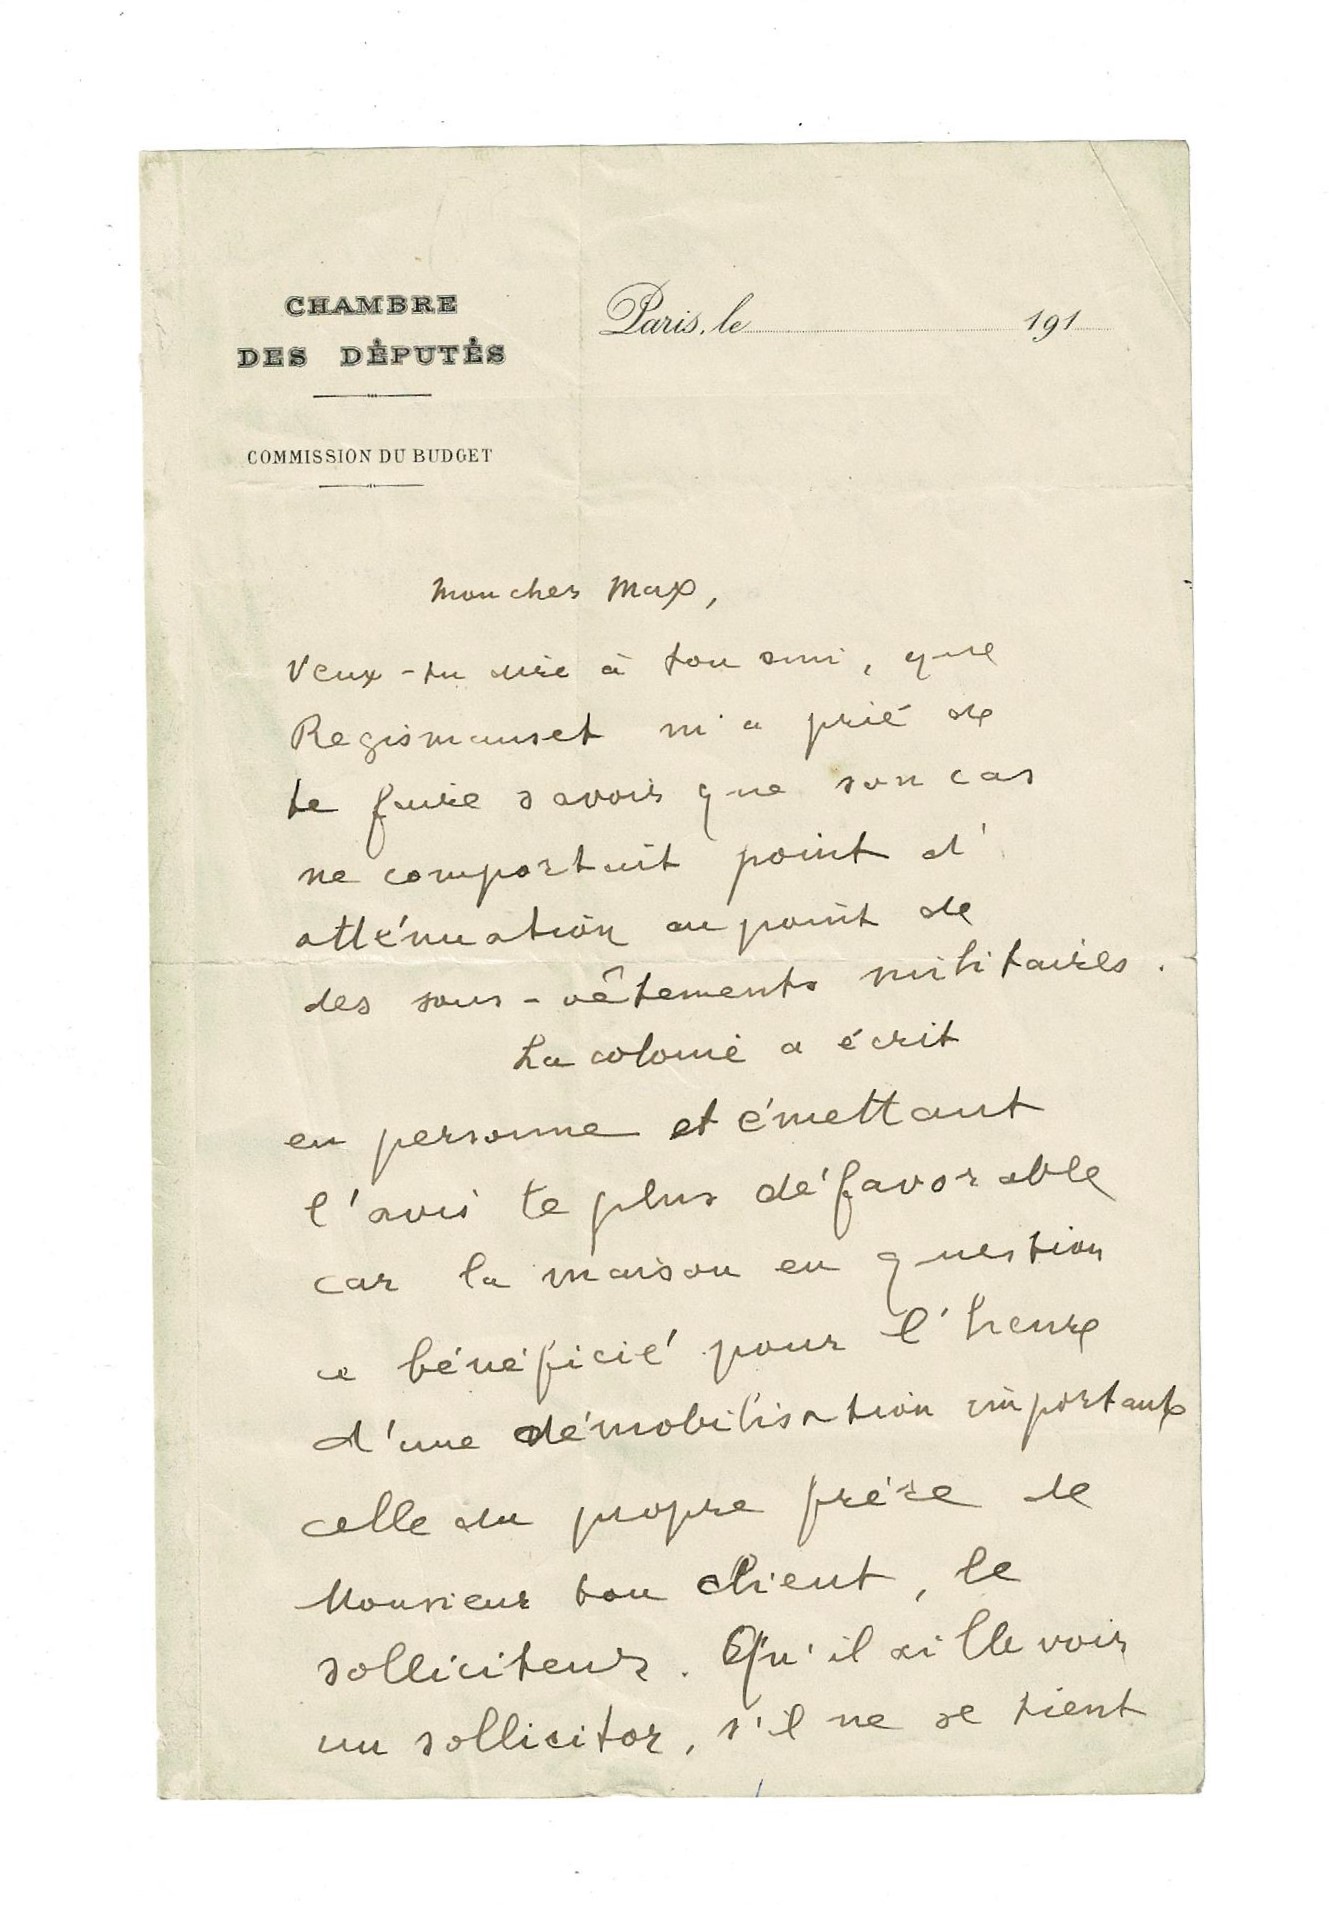 CHAMBRE
DES DÉPUTÉS
COMMISSION DU BUDGET
Paris, le 191
Mon cher Max,
Veux-tu dire à ton ami, que
Regismanset m'a prié de
te faire savoir que son cas
ne comportait point d'
atténuation au point de
des sous-vêtements militaires.
La colonie a écrit
en personne et émettant
l'avis le plus défavorable
car la maison en question
a bénéficié pour l'heure
d'une démobilisation importante
celle du propre frère de
Monsieur ton client, le
solliciteur. Qu'il aille voir
un sollicitor, s'il ne se tient